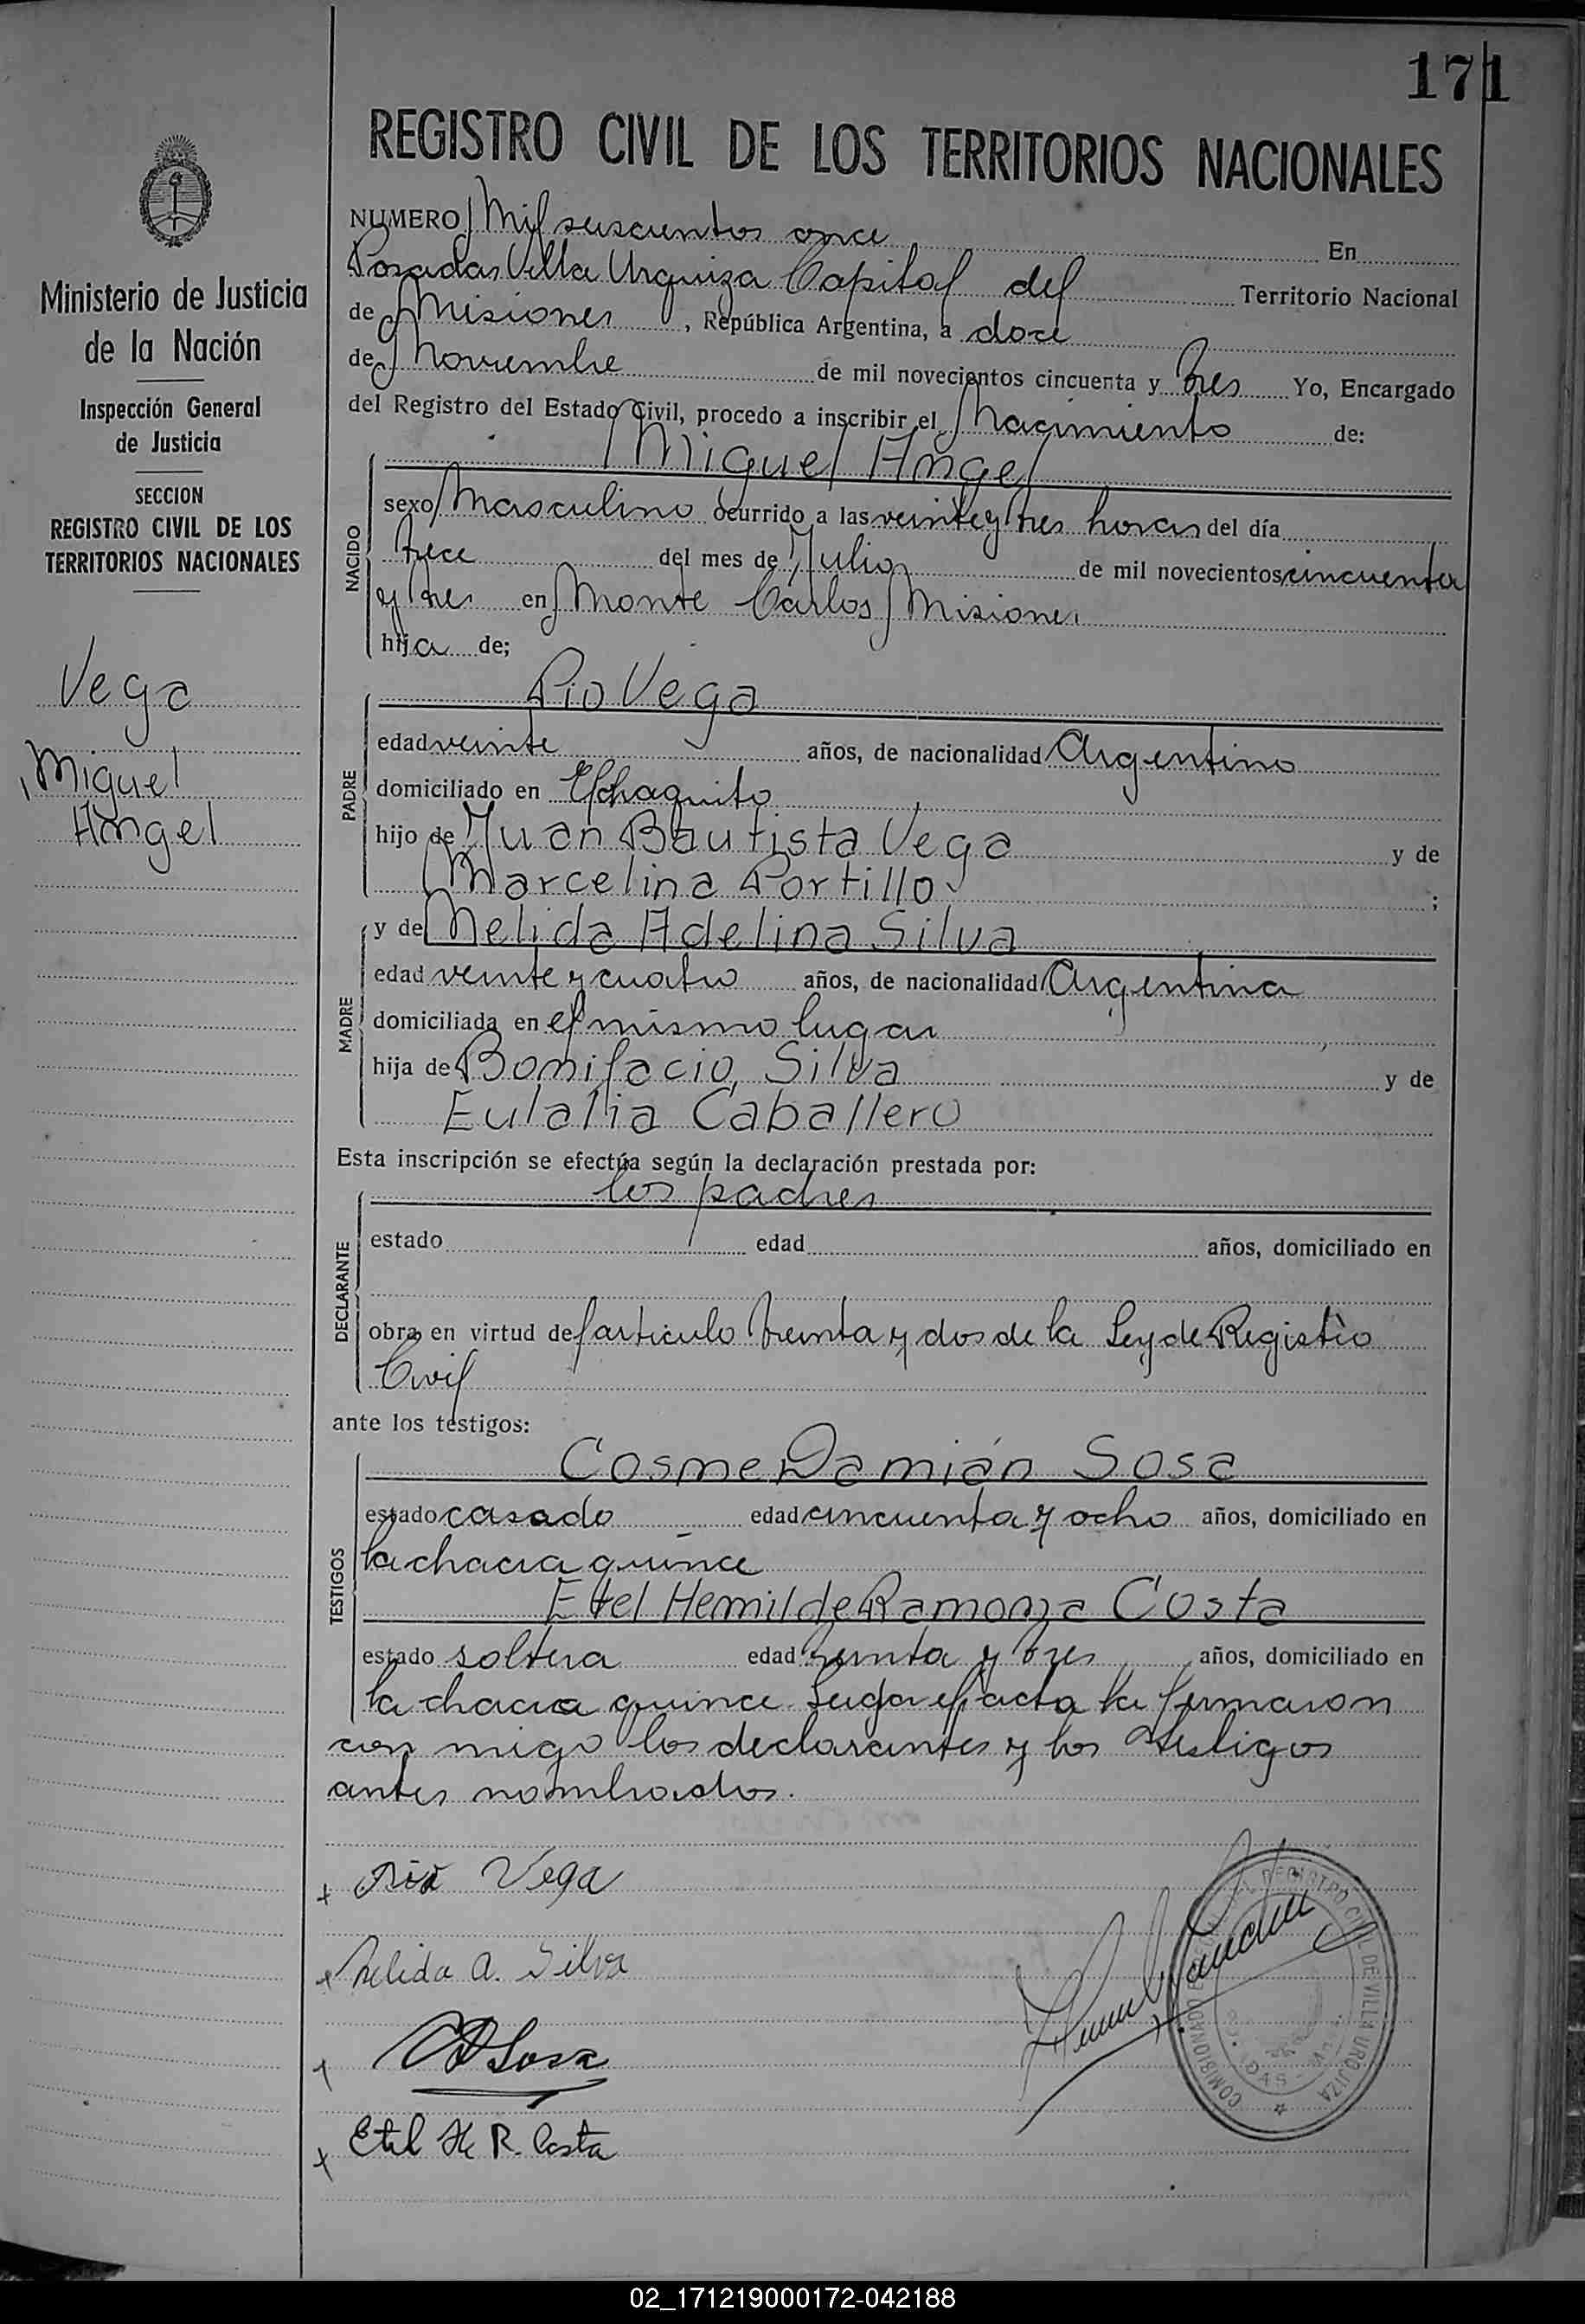 171
REGISTRO CIVIL DE LOS TERRITORIOS NACIONALES
Ministerio de Justicia
de la Nación
Inspección General
de Justicia
SECCION
REGISTRO CIVIL DE LOS
TERRITORIOS NACIONALES
Vega
Miguel
Angel
NUMERO Mil seiscientos once En
Posadas Villa Urquiza Capital del Territorio Nacional
de Misiones, República Argentina, a doce
de Noviembre de mil novecientos cincuenta y Tres Yo, Encargado
del Registro del Estado Civil, procedo a inscribir el Nacimiento de:
Miguel Angel
NACIDO
sexo Masculino ocurrido a las veinte y tres horas del día
trece del mes de Julio de mil novecientos cincuenta
y tres en Monte Carlos Misiones
hija de;
PADRE
Pio Vega
edad veinte años, de nacionalidad Argentino
domiciliado en El chaquito
hijo de Juan Bautista Vega y de
Marcelina Portillo ;
MADRE
y de Nelida Adelina Silva
edad veinte y cuatro años, de nacionalidad Argentina
domiciliada en el mismo lugar
hija de Bonifacio, Silva y de
Eulalia Caballero
Esta inscripción se efectúa según la declaración prestada por:
DECLARANTE
los padres
estado edad años, domiciliado en
obra en virtud del articulo treinta y dos de la Ley de Registro
Civil
ante los testigos:
TESTIGOS
Cosme Damián Sosa
estado casado edad cincuenta y ocho años, domiciliado en
la chacra quince
Etel Hemilde Ramona Costa
estado soltera edad treinta y tres años, domiciliado en
la chacra quince el acta la firmaron
con migo los declarantes y los testigos
antes nombrados.
+ Pio Vega
+ Nelida A. Silva
CD Sosa
+ Etel H R. Costa
REGISTRO CIVIL DE VILLA URQUIZA
COMISIONADO
02_171219000172-042188